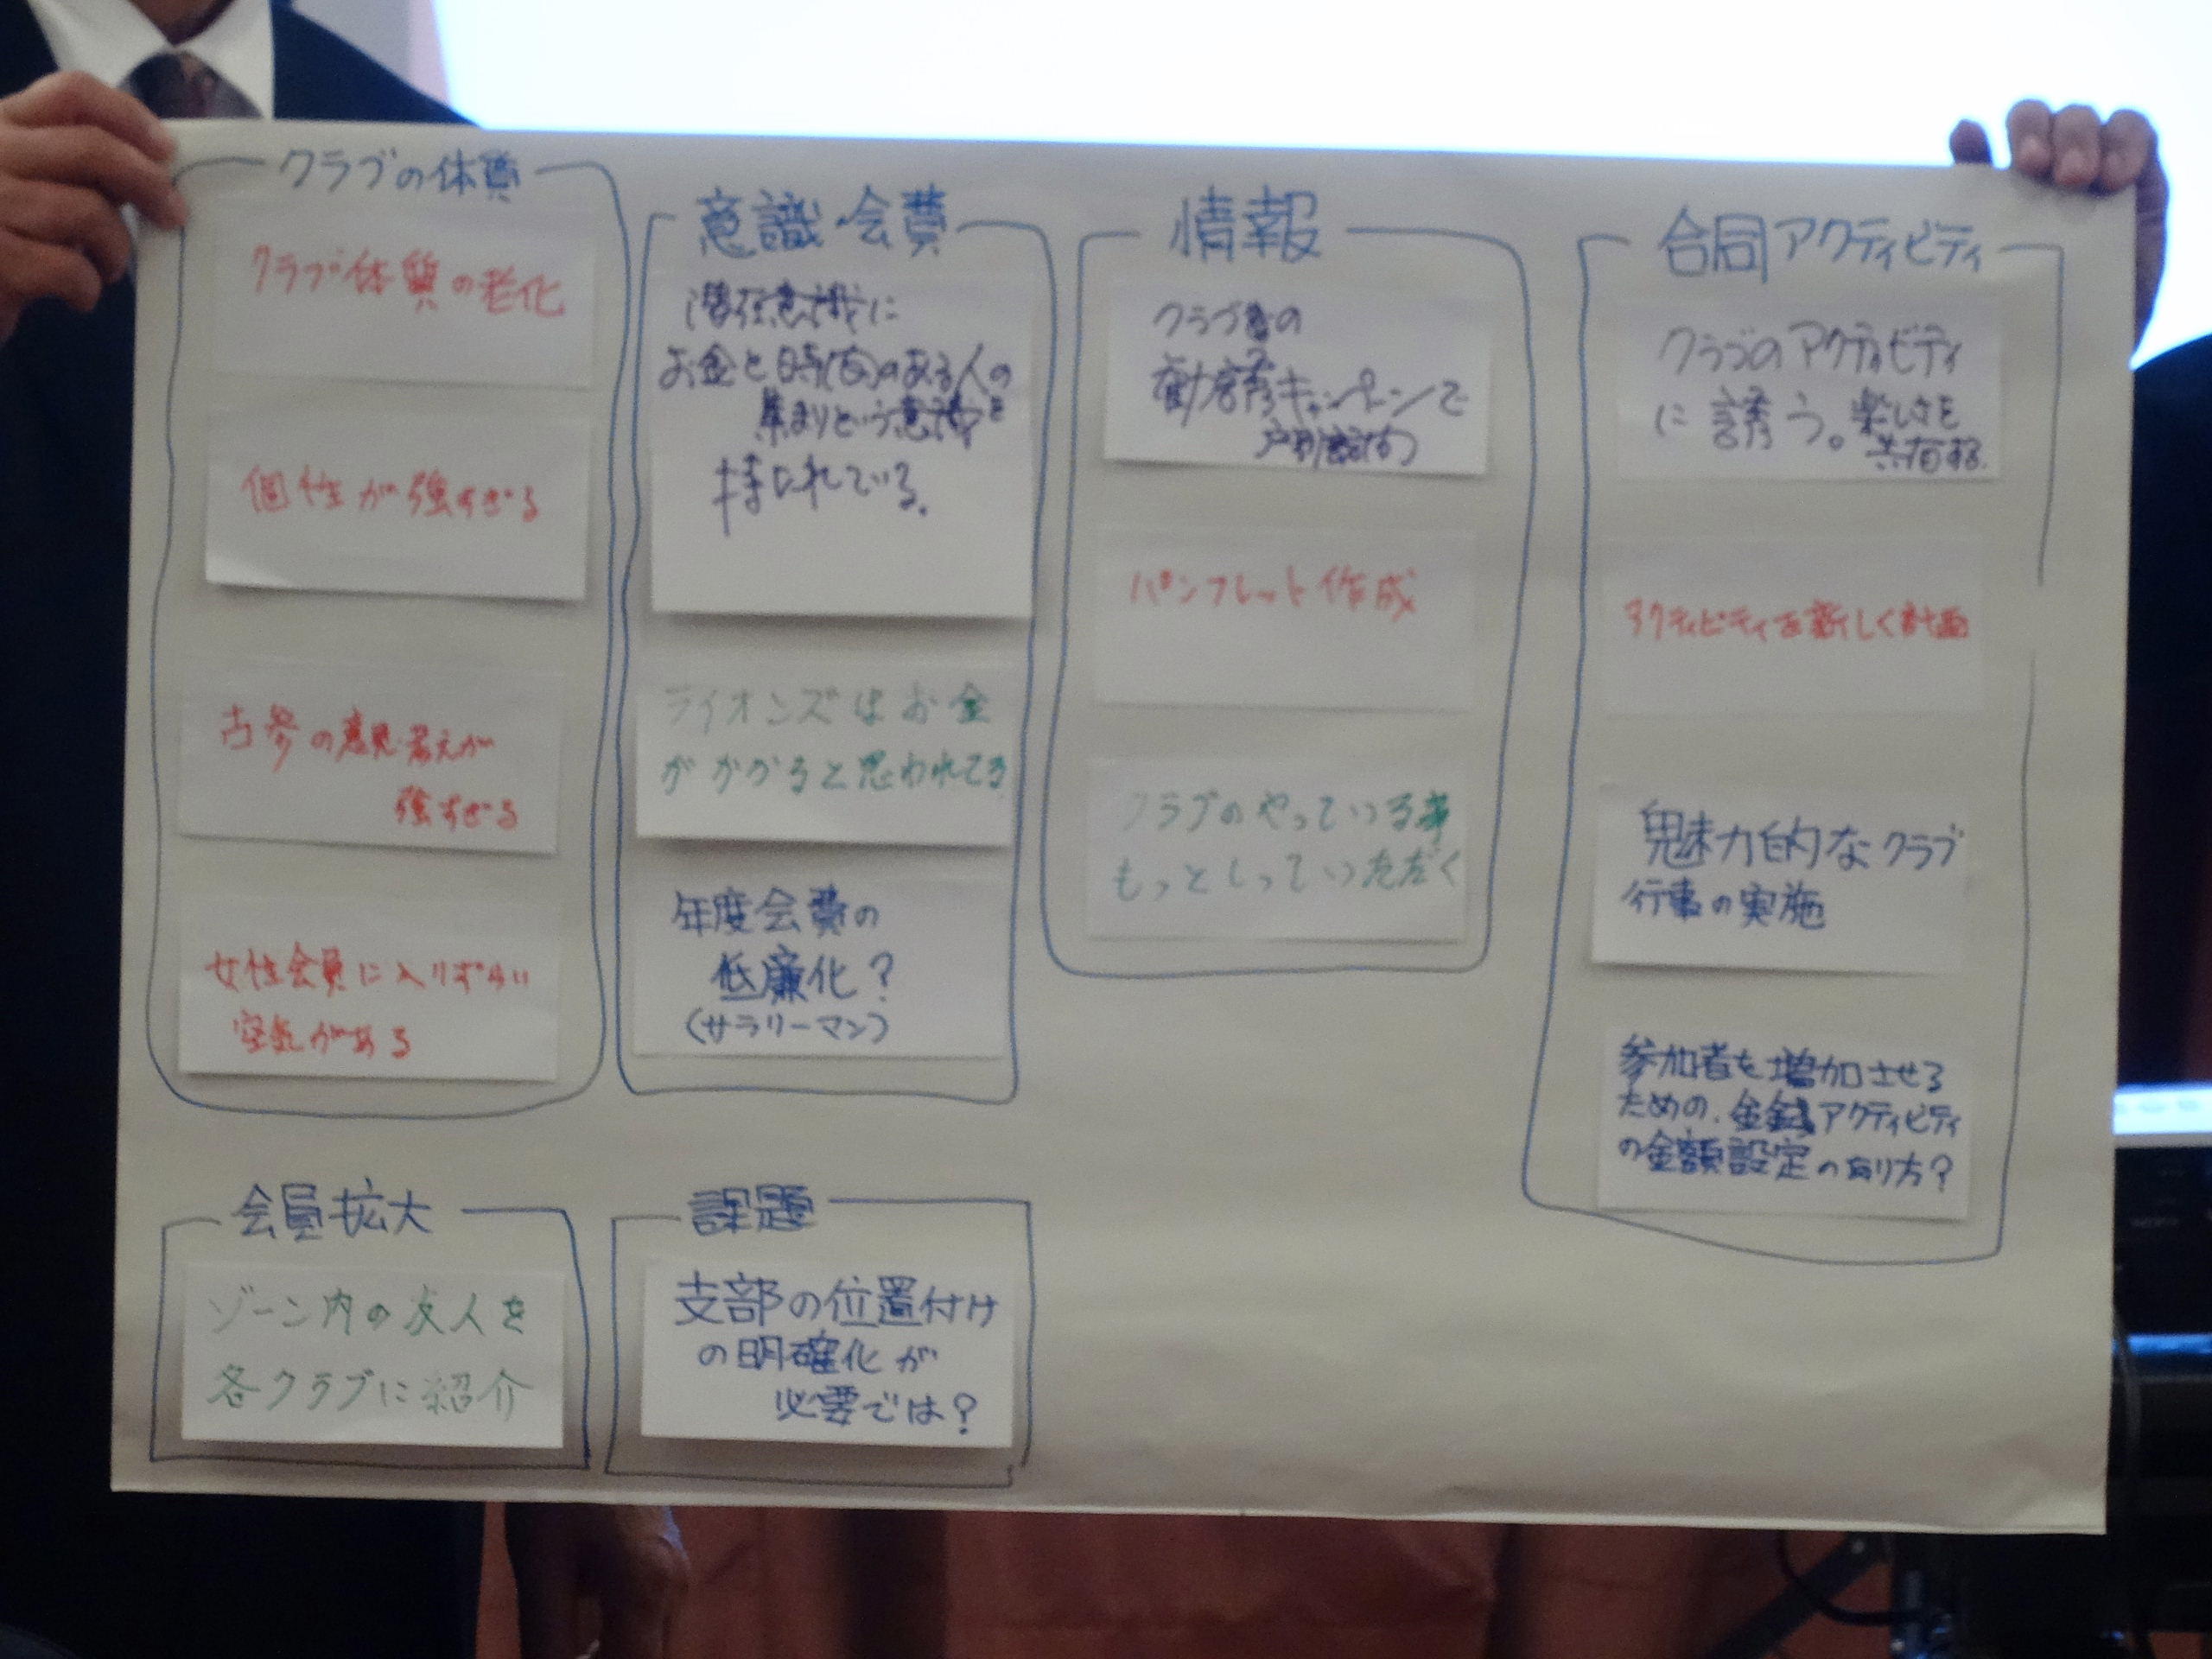 クラブの体質
クラブ体質の老化
個性が強すぎる
古参の意見・考えが
強すぎる
女性会員に入りずらい
空気がある
意識・会費
潜在意識に
お金と時間のある人の
集まりという意識を
持たれている。
ライオンズはお金
がかかると思われてる
年度会費の
低廉化？
（サラリーマン）
情報
クラブ員の
勧誘キャンペーンで
戸別訪問
パンフレット作成
クラブのやっている事
もっとしっていただく
合同アクティビティ
クラブのアクティビティ
に誘う。楽しさを
共有する。
アクティビティを新しく計画
魅力的なクラブ
行事の実施
参加者を増加させる
ための、金銭アクティビティ
の金額設定のあり方？
会員拡大
ゾーン内の友人を
各クラブに紹介
課題
支部の位置付け
の明確化が
必要では？